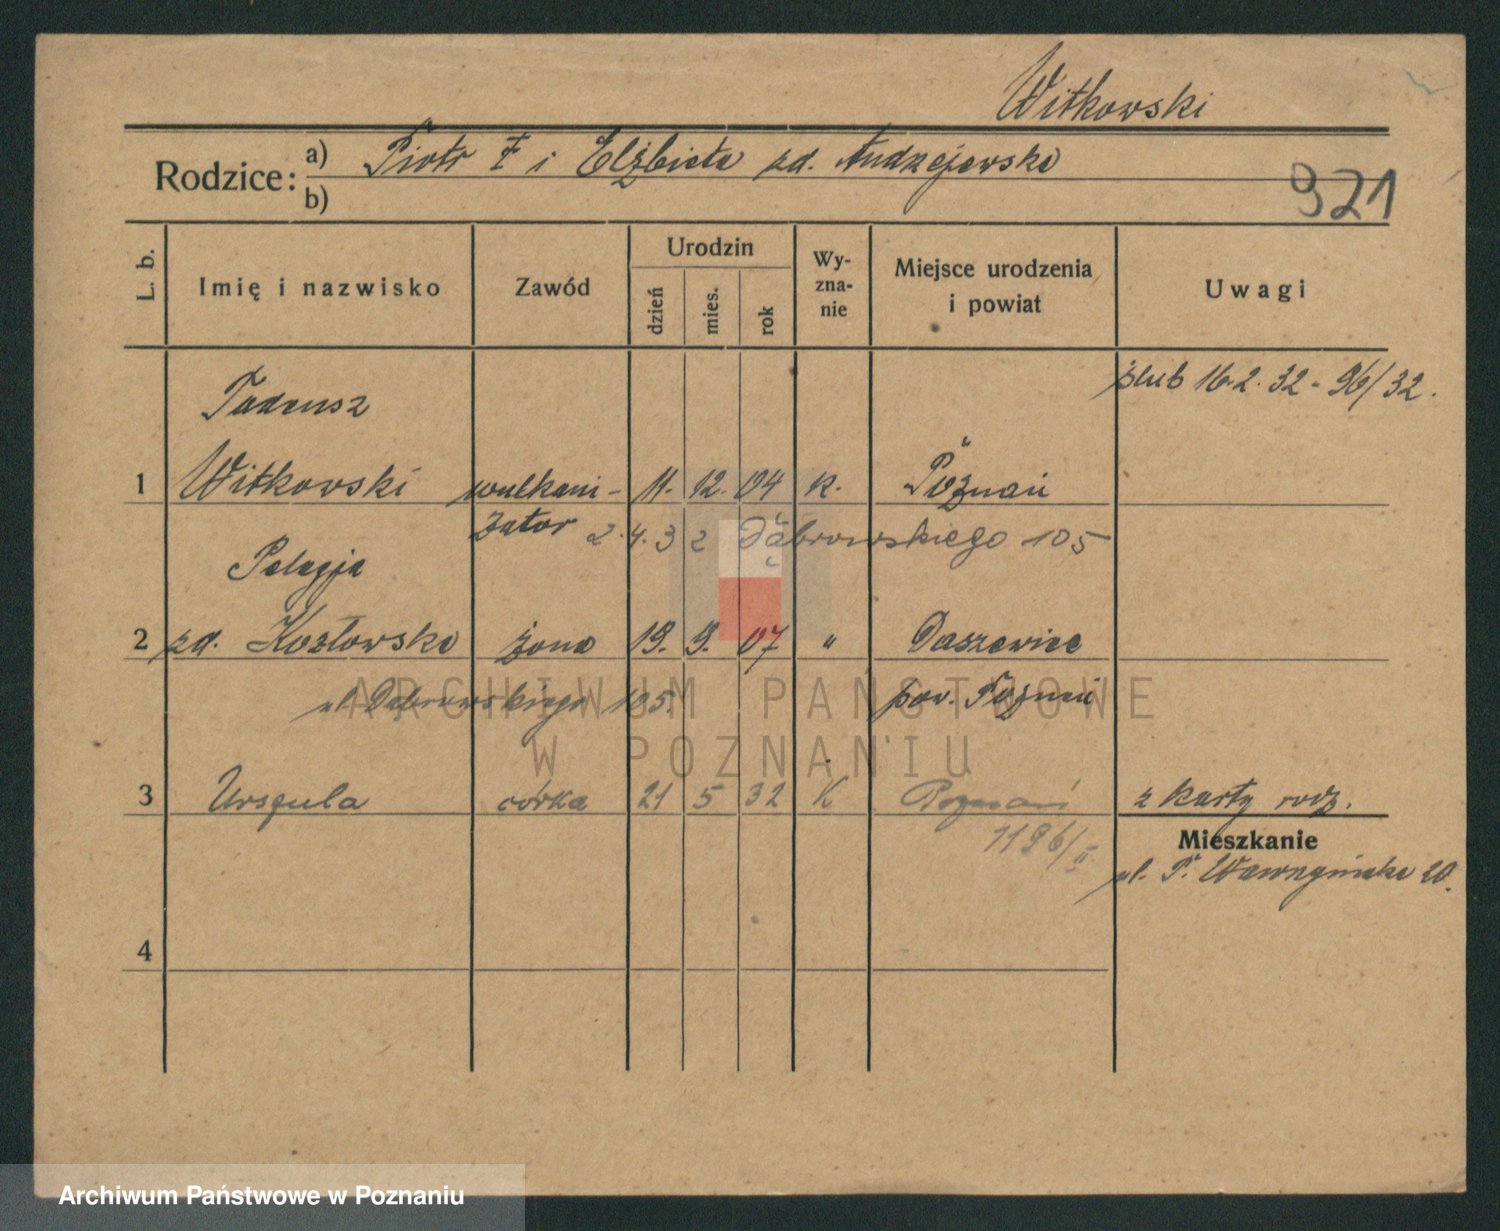 Witkowski
Rodzice:
a) Piotr i Elżbieta zd. Andrzejewska
b)
921
L. b.
Imię i nazwisko
Zawód
Urodzin
dzień
mies.
rok
Wy-
zna-
nie
Miejsce urodzenia
i powiat
Uwagi
ślub 16.2.32 - 96/32.
Tadeusz
1 Witkowski wulkani- 11. 12. 04 k. Poznań
zator 2.4.32 Dąbrowskiego 105
Pelagja
2 zd. Kozłowska żona 19. 9. 07 " Daszewice
ul. Dąbrowskiego 105. pow. Poznań
3 Urszula córka 21 5 32 K Poznań z karty rodz.
1196/II.
Mieszkanie
ul. P. Wawrzyniaka 20.
4
ARCHIWUM PAŃSTWOWE
W POZNANIU
Archiwum Państwowe w Poznaniu